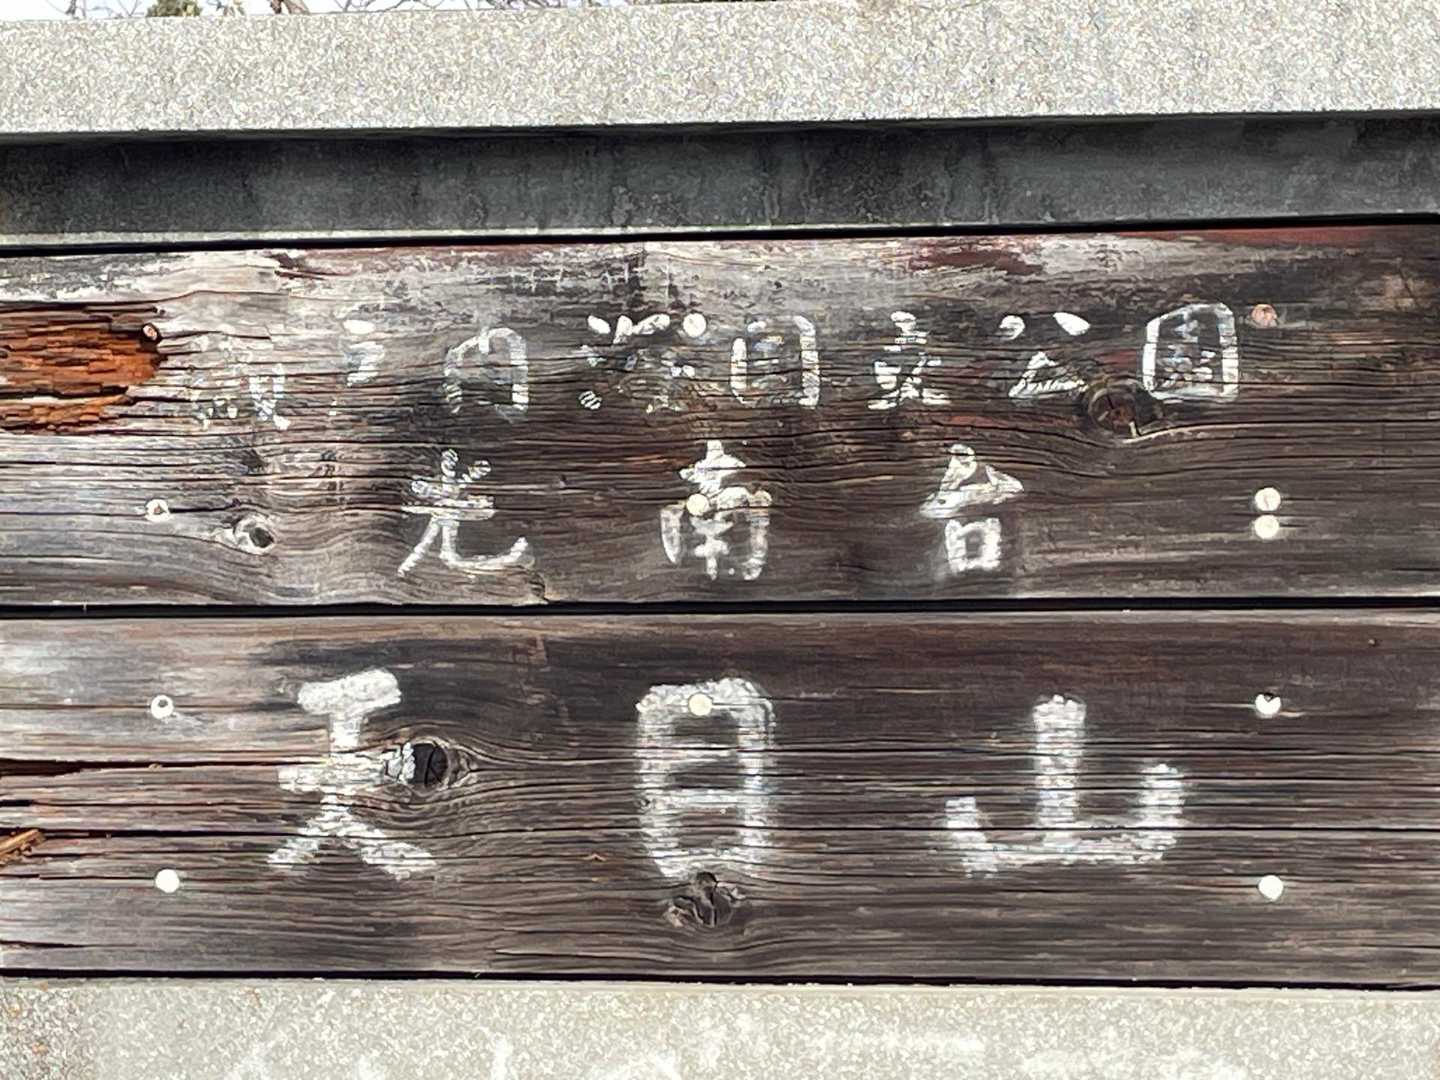 瀬戸内海国立公園
光南台
天目山